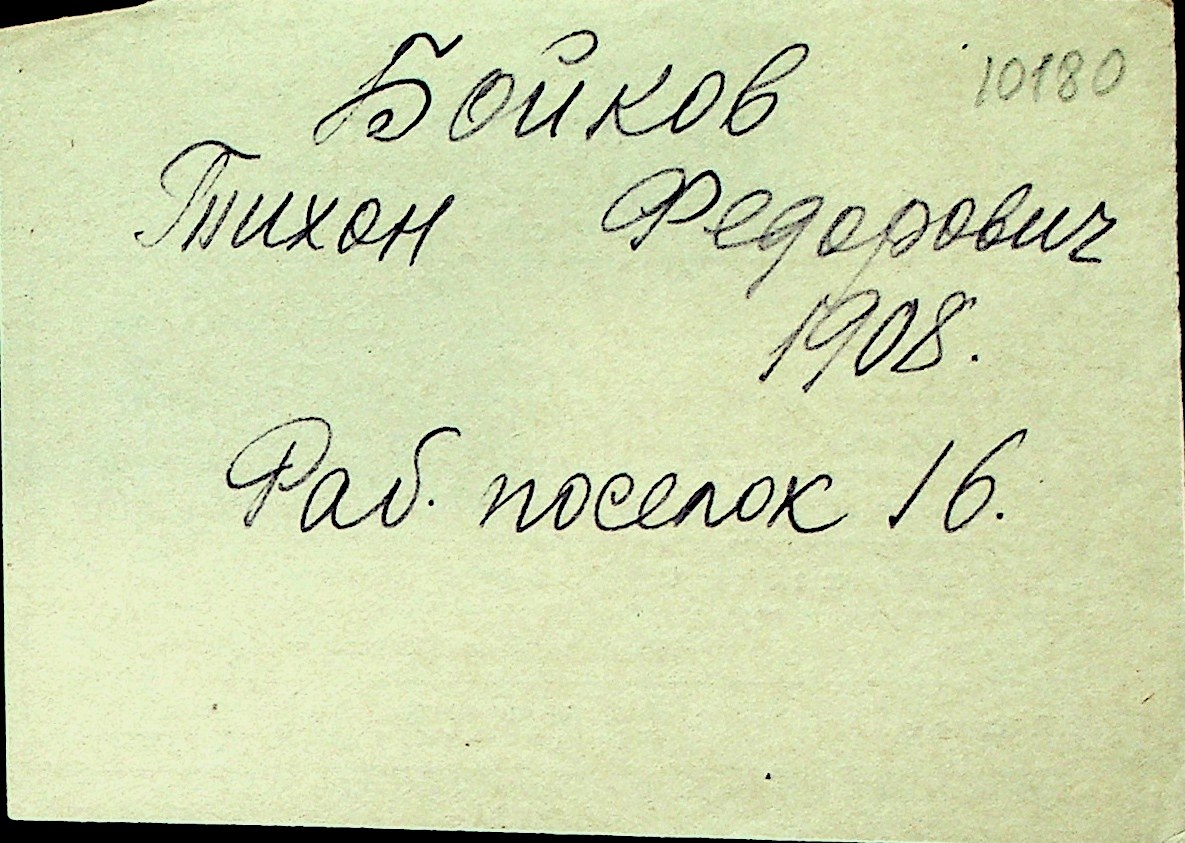 10180
Бойков
Тихон Федорович
1908.
Раб. поселок 16.